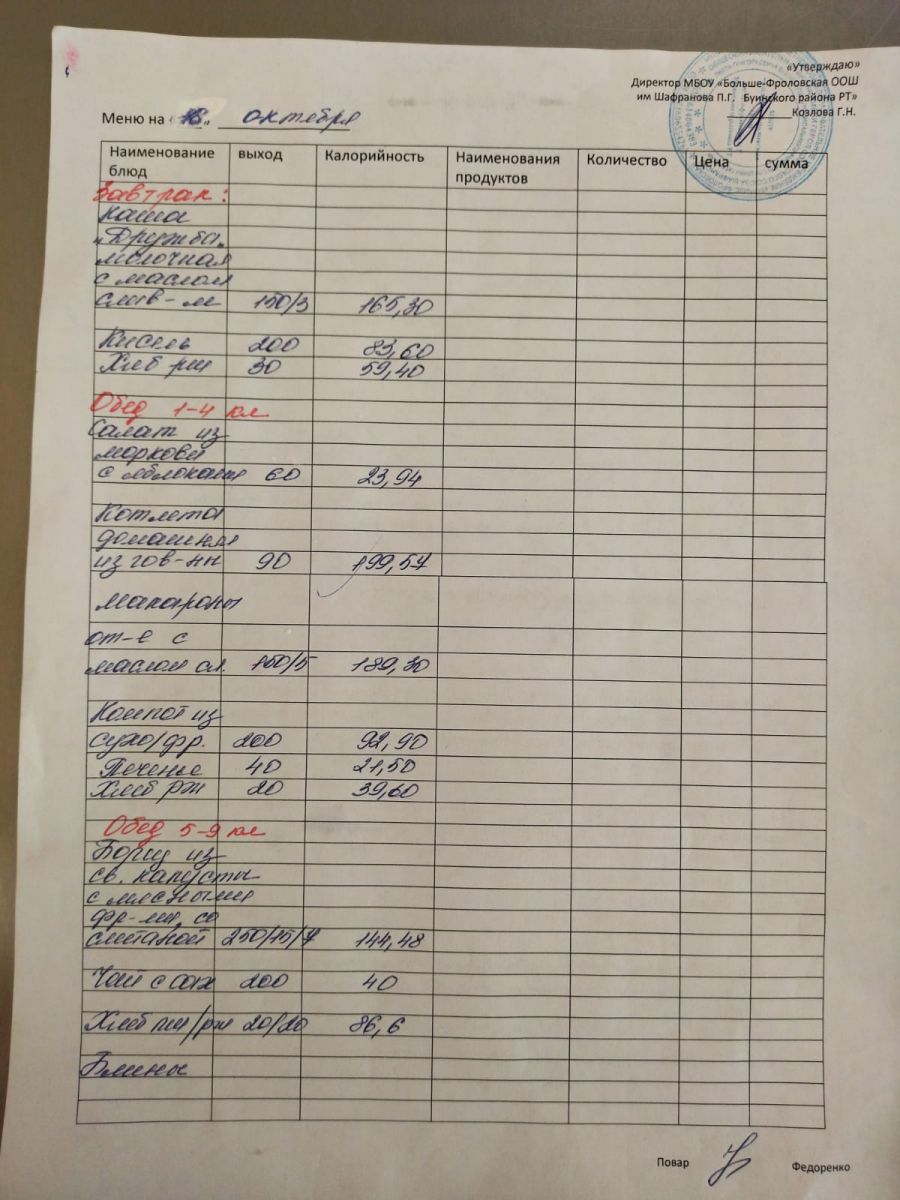 «Утверждаю»
Директор МБОУ «Больше-Фроловская ООШ
им Шафранова П.Г. Буинского района РТ»
Козлова Г.Н.
Меню на «18» октября
Наименование блюд выход Калорийность Наименования продуктов Количество Цена сумма
Завтрак:
Каша
„Дружба„
молочная
с маслом
слив-м 150/3 165,30
Кисель 200 83,60
Хлеб рш 30 59,40
Обед 1-4 кл
Салат из
моркови
с яблоками 60 23,94
Котлета
домашняя
из гов-ны 90 199,57
Макароны
от-е с
маслом сл. 150/5 189,30
Компот из
сухо/фр. 200 92,90
Печенье 40 21,50
Хлеб рж 20 39,60
Обед 5-9 кл
Борщ из
св. капусты
с мясными
фр-ми, со
сметаной 250/15/7 144,48
Чай с сах 200 40
Хлеб пш/рж 20/20 86,6
Блины
Повар Федоренко